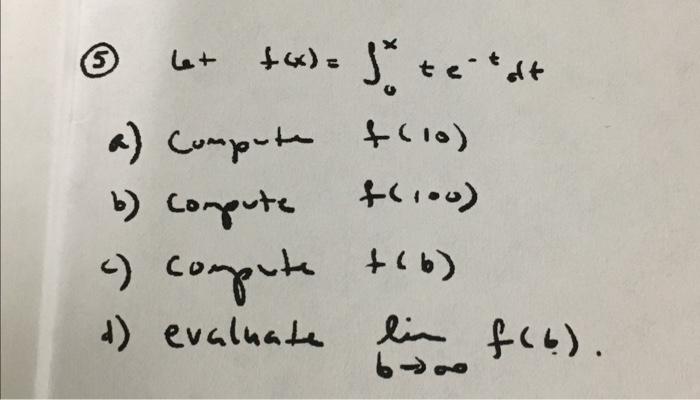 ⑤ Let f(x) = ∫₀ˣ t e⁻ᵗ dt
a) Compute f(10)
b) Compute f(100)
c) Compute f(b)
d) evaluate lim b→∞ f(b).